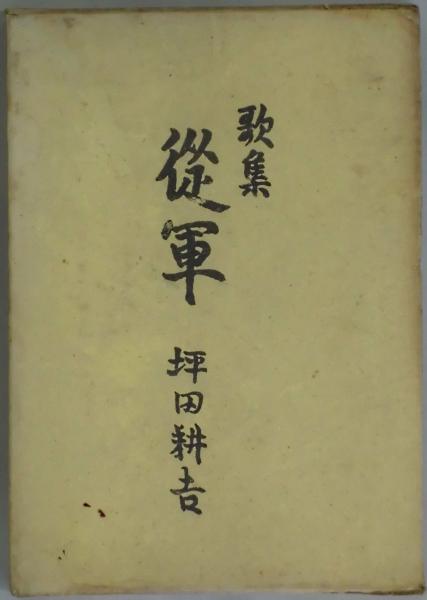 歌集
從軍
坪田耕吉